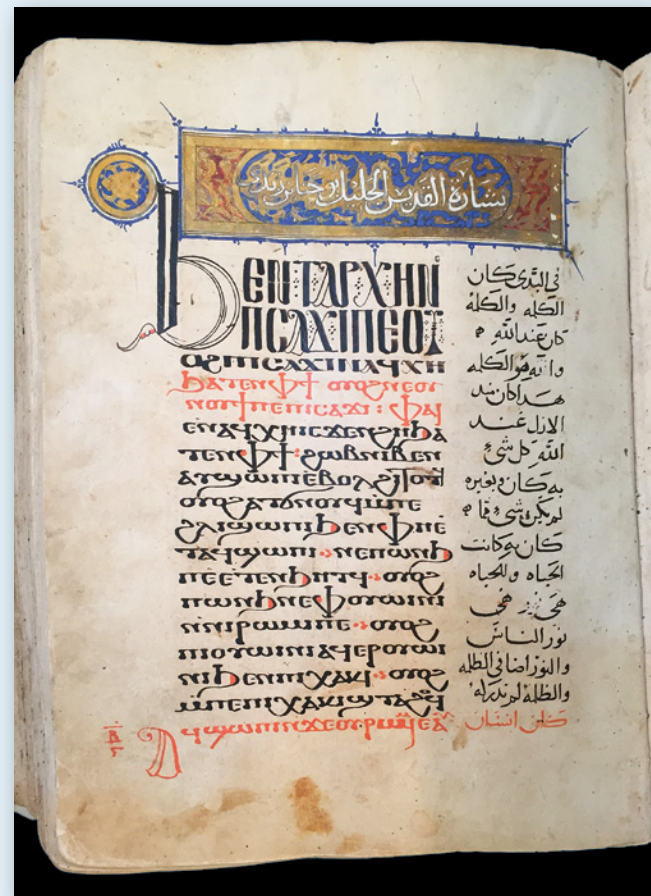 بشارة القديس الجليل يوحنا
ϦΕΝ ΤΑΡΧΗ Ν
ΠΣΑϪΙ ΠΕ ΟΥ
ⲟϩ ⲡⲥⲁϫⲓ ⲛⲁϥⲭⲏ
ϧⲁⲧⲉⲛ ⲫϯ ⲟⲩⲟϩ ⲛⲉⲟⲩ
ⲛⲟⲩϯ ⲡⲉ ⲡⲓⲥⲁϫⲓ : ⲫⲁⲓ
ⲉⲛⲁϥⲭⲏ ⲓⲥϫⲉⲛ ϩⲏ ϧⲁ
ⲧⲉⲛ ⲫϯ : ϩⲱⲃ ⲛⲓⲃⲉⲛ
ⲁⲩϣⲱⲡⲓ ⲉⲃⲟⲗ ϩⲓⲧⲟⲧϥ
ⲟⲩⲟϩ ⲁⲧϭⲛⲟⲩϥ ⲙⲡⲉ
ϩⲗⲓ ϣⲱⲡⲓ ϧⲉⲛ ⲫⲏ ⲉ
ⲧⲁϥϣⲱⲡⲓ ⁘ ⲛⲉ ⲡⲱⲛϧ
ⲡⲉ ⲉⲧⲉ ⲛϧⲏⲧϥ ⁘ ⲟⲩⲟϩ
ⲡⲱⲛϧ ⲛⲉ ⲫⲟⲩⲱⲓⲛⲓ
ⲛⲛⲓⲣⲱⲙⲓ ⲡⲉ ⁘ ⲟⲩⲟϩ
ⲡⲓⲟⲩⲱⲓⲛⲓ ⲁϥⲉⲣⲟⲩⲱⲓ
ⲛⲓ ϧⲉⲛ ⲡⲓⲭⲁⲕⲓ ⁘ ⲟⲩⲟϩ
ⲙⲡⲉ ⲡⲓⲭⲁⲕⲓ ϣⲧⲁϩⲟϥ
ⲁϥϣⲱⲡⲓ ⲛϫⲉ ⲟⲩⲣⲱⲙⲓ ⲉⲁ
في البدى كان
الكلمه والكلمه
كان عند الله
والله هو الكلمه
هدا كان مند
الازل عند
الله كل شي
به كان وبغيره
لم يكن شي مما
كان به كانت
الحياه والحياه
هي
نور الناس
والنور اضا في الظلمه
والظلمه لم تدركه
كان انسان